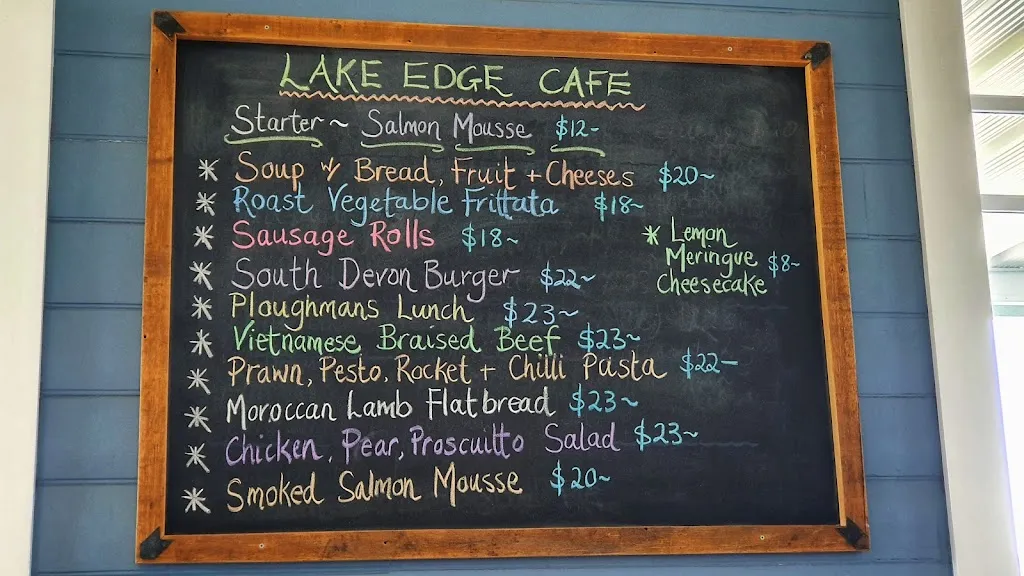 LAKE EDGE CAFE
Starter ~ Salmon Mousse $12-
* Soup w/ Bread, Fruit + Cheeses $20~
* Roast Vegetable Frittata $18~
* Sausage Rolls $18~
* South Devon Burger $22~
* Ploughmans Lunch $23~
* Vietnamese Braised Beef $23~
* Prawn, Pesto, Rocket + Chilli Pasta $22-
* Moroccan Lamb Flatbread $23~
* Chicken, Pear, Proscuitto Salad $23~
* Smoked Salmon Mousse $20~
* Lemon
Meringue $8~
Cheesecake